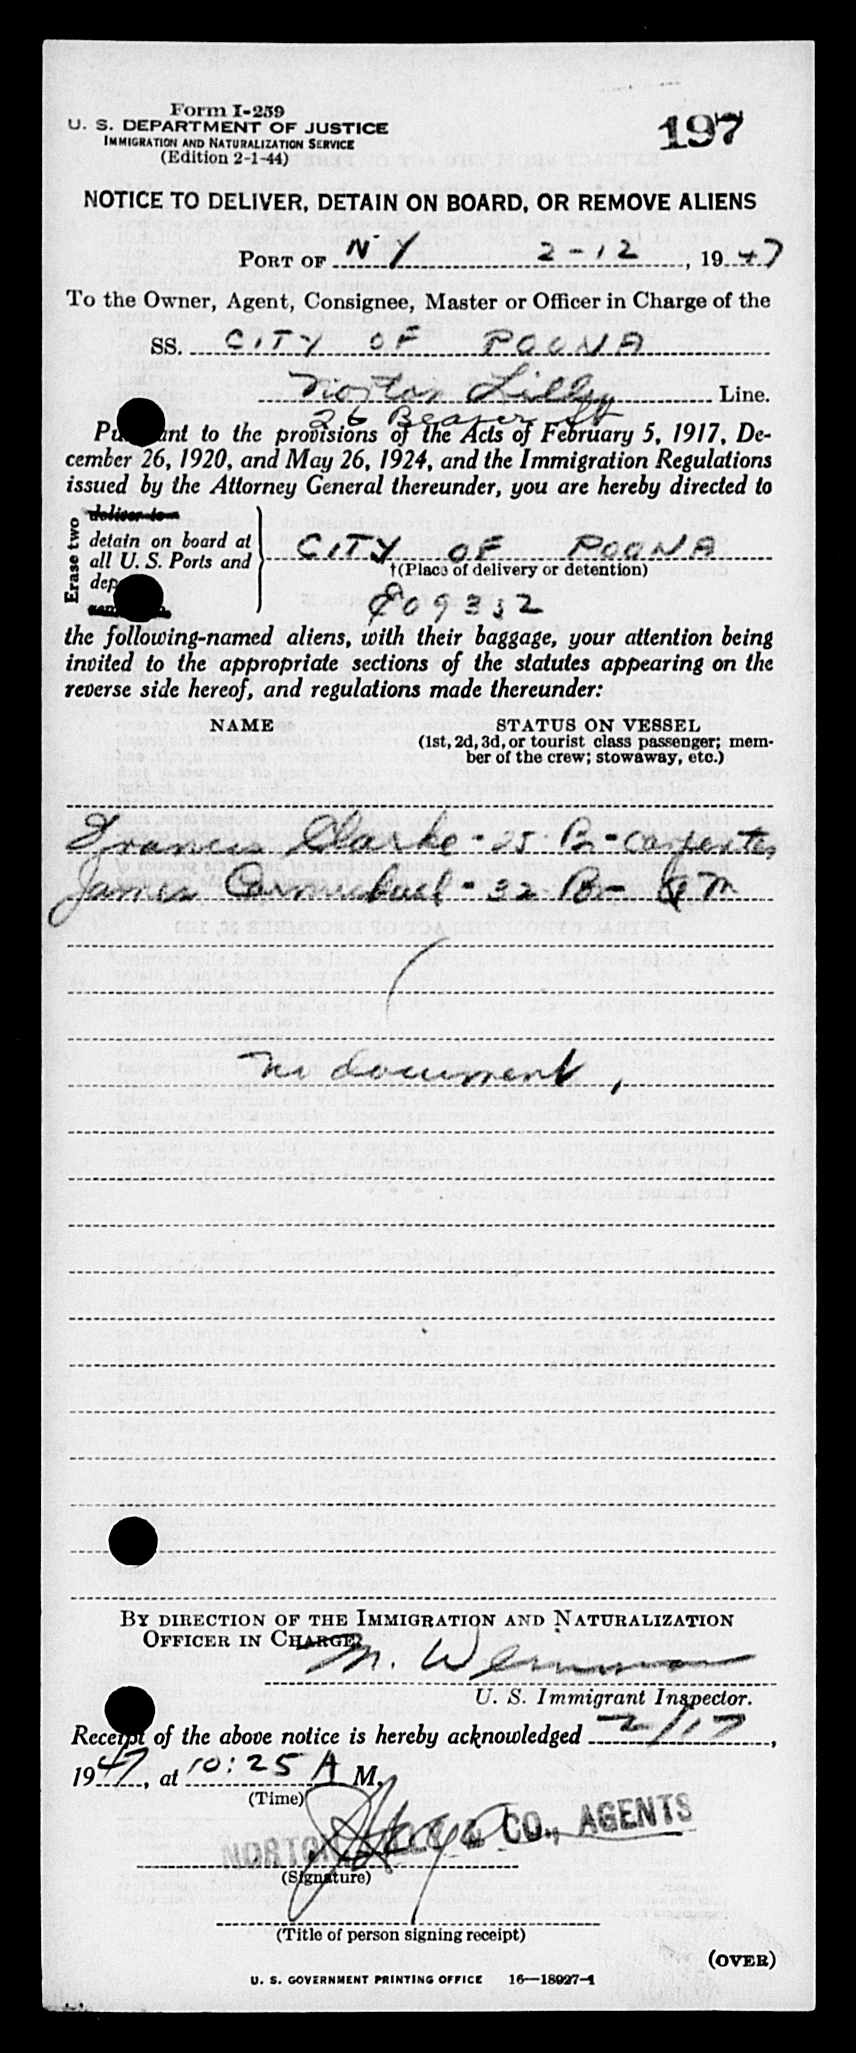 Form I-259
U. S. DEPARTMENT OF JUSTICE
IMMIGRATION AND NATURALIZATION SERVICE
(Edition 2-1-44)
197
NOTICE TO DELIVER, DETAIN ON BOARD, OR REMOVE ALIENS
PORT OF N Y 2-12, 1947
To the Owner, Agent, Consignee, Master or Officer in Charge of the
SS. CITY OF POONA
Norton Lilly Line.
26 Beaver St
Pursuant to the provisions of the Acts of February 5, 1917, De-
cember 26, 1920, and May 26, 1924, and the Immigration Regulations
issued by the Attorney General thereunder, you are hereby directed to
Erase two
deliver to
detain on board at
all U. S. Ports and
CITY OF POONA
†(Place of delivery or detention)
809332
the following-named aliens, with their baggage, your attention being
invited to the appropriate sections of the statutes appearing on the
reverse side hereof, and regulations made thereunder:
NAME STATUS ON VESSEL
(1st, 2d, 3d, or tourist class passenger; mem-
ber of the crew; stowaway, etc.)
Francis Clarke - 25 Br - Carpenter
James Carmichael - 32 Br - QM
no document,
BY DIRECTION OF THE IMMIGRATION AND NATURALIZATION
OFFICER IN CHARGE,
U. S. Immigrant Inspector.
Receipt of the above notice is hereby acknowledged 2/17,
1947, at 10:25 A M.
(Time)
NORTON LILLY & CO., AGENTS
(Signature)
(Title of person signing receipt)
(OVER)
U. S. GOVERNMENT PRINTING OFFICE 16—18927-1